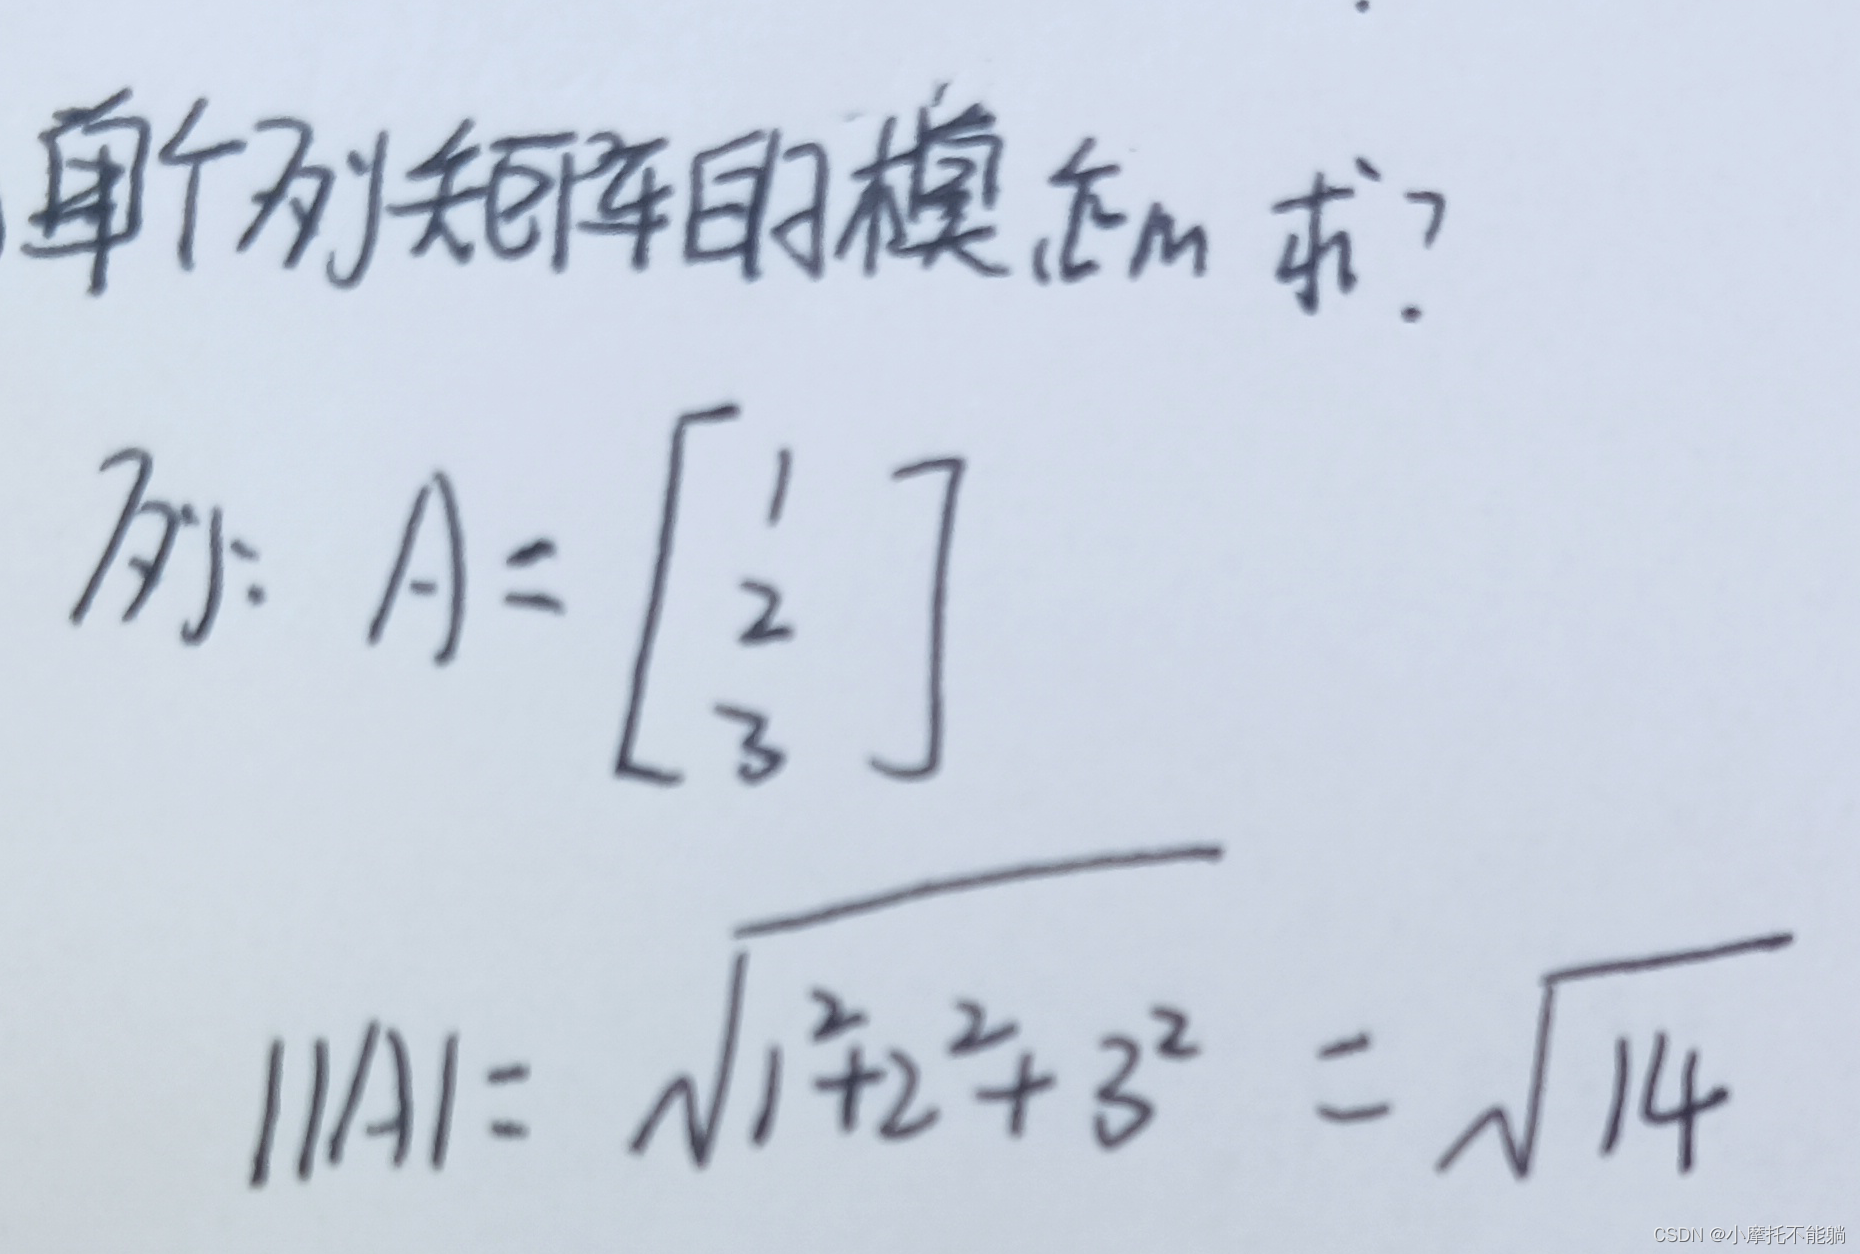 单个列矩阵的模怎m求?
列: A = [1 2 3]
||A| = √1²+2²+3² = √14
CSDN @小摩托不能躺